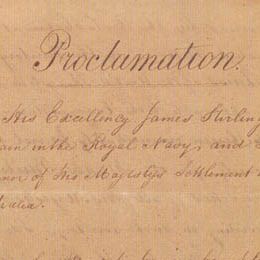 Proclamation.
His Excellency James Stirling
in the Royal Navy, and
of His Majesty's Settlement